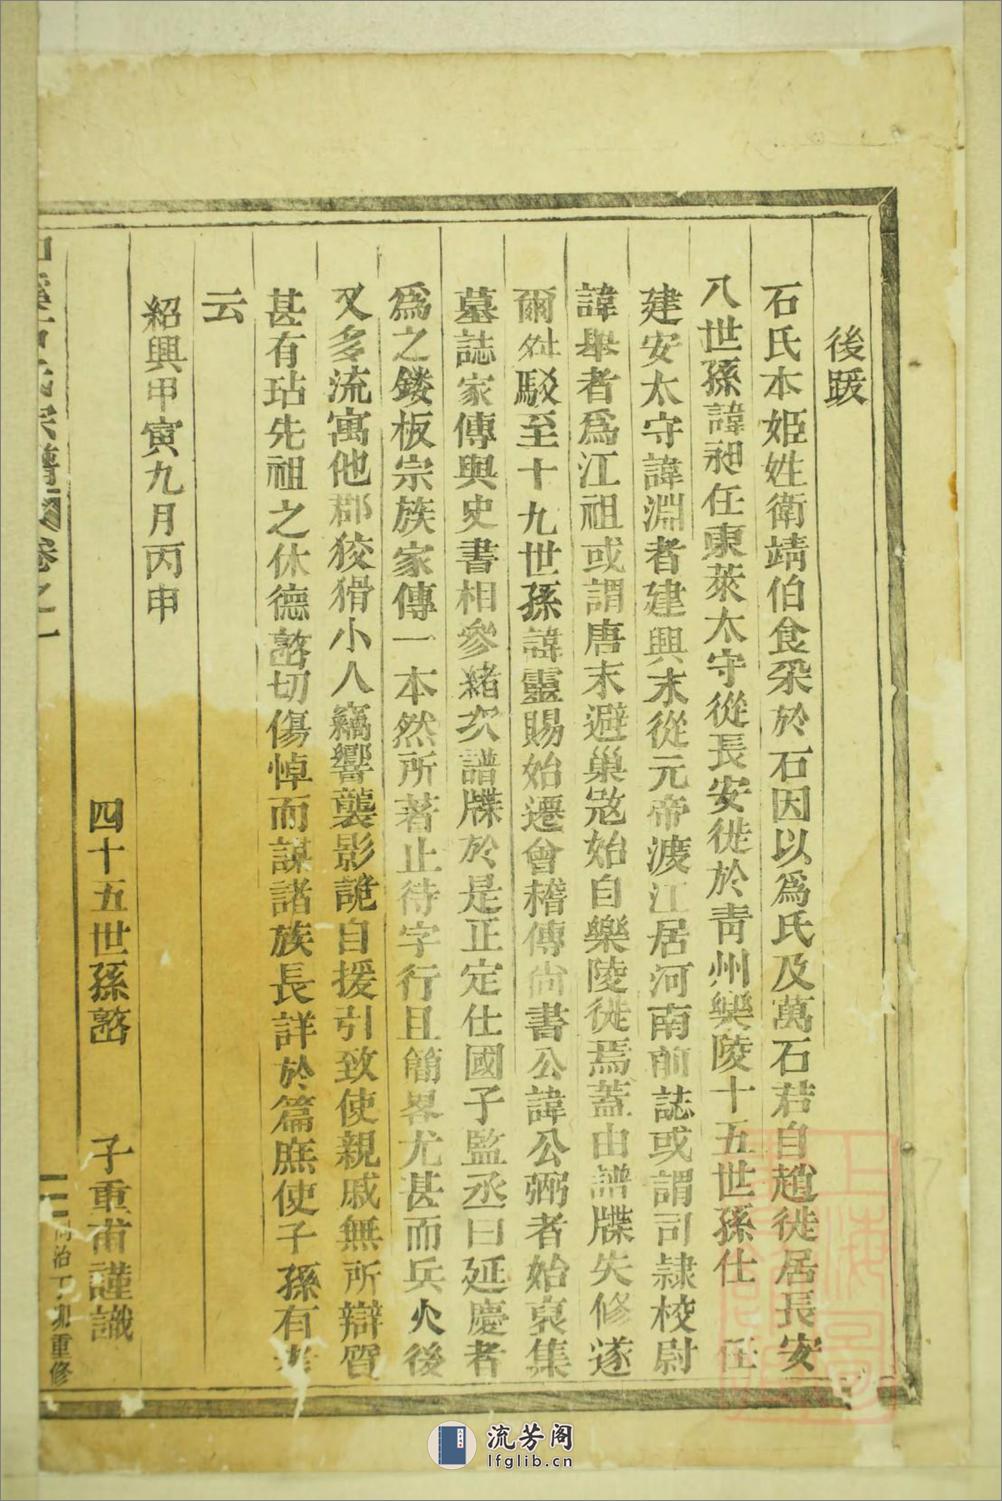 後跋
石氏本姬姓衛靖伯食采於石因以爲氏及萬石君自趙徙居長安
八世孫諱昶任東萊太守從長安徙於青州樂陵十五世孫仕 任
建安太守諱淵者建興末從元帝渡江居河南前誌或謂司隷校尉
諱舉者爲江祖或謂唐末避巢宼始自樂陵徙焉蓋由譜牒失修遂
爾舛駁至十九世孫諱靈賜始遷會稽傳尚書公諱公弼者始裒集
墓誌家傳與史書相參緒次譜牒於是正定仕國子監丞曰延慶者
爲之鏤板宗族家傳一本然所著止待字行且簡畧尤甚而兵火後
又多流寓他郡狡猾小人竊響襲影詭自援引致使親戚無所辯質
甚有玷先祖之休德嶅切傷悼而謀諸族長詳於篇庶使子孫有考
云
紹興甲寅九月丙申
四十五世孫嶅 子重甫謹識
石氏宗譜 卷之一
同治丁卯重修
上海圖書館藏
流芳阁
lfglib.cn